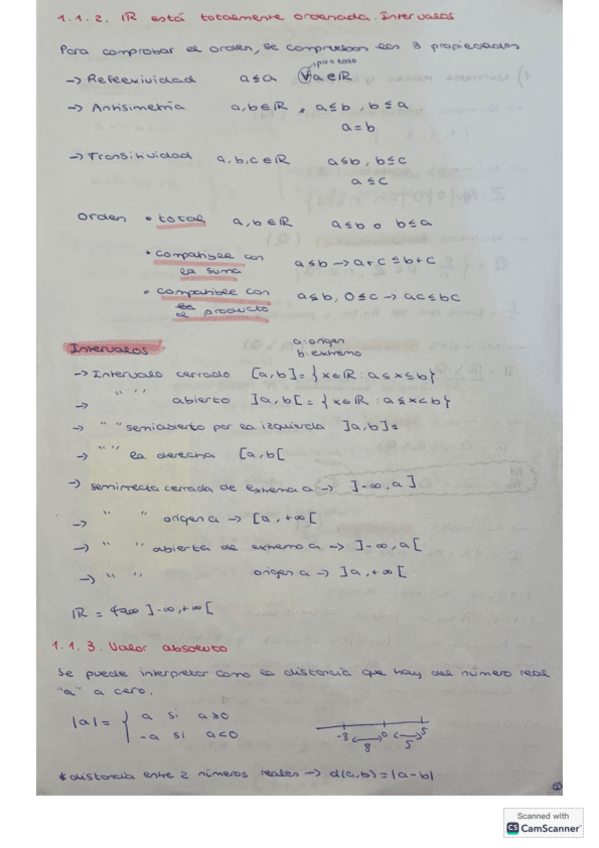 1.1.2. ℝ está totalmente ordenada. Intervalos
Para comprobar el orden, se comprueban las 3 propiedades
para todo
→ Reflexividad a ≤ a ∀a ∈ ℝ
→ Antisimetría a, b ∈ ℝ a ≤ b, b ≤ a
a = b
→ Transitividad a, b, c ∈ ℝ a ≤ b, b ≤ c
a ≤ c
Orden • total a, b ∈ ℝ a ≤ b o b ≤ a
• compatible con a ≤ b → a + c ≤ b + c
la suma
• compatible con a ≤ b, 0 ≤ c → ac ≤ bc
el producto
a: origen
Intervalos b: extremo
→ Intervalo cerrado [a, b] = { x ∈ ℝ : a ≤ x ≤ b }
→ " " abierto ]a, b[ = { x ∈ ℝ : a ≤ x < b }
→ " " semiabierto por la izquierda ]a, b]
→ " " la derecha [a, b[
→ semirrecta cerrada de extremo a → ]-∞, a]
→ " " origen a → [a, +∞[
→ " " abierta de extremo a → ]-∞, a[
→ " " origen a → ]a, +∞[
ℝ = ]-∞, +∞[
1.1.3. Valor absoluto
Se puede interpretar como la distancia que hay del número real
"a" a cero.
|a| = { a si a ≥ 0
-a si a < 0
-8 0 5
8 5
* distancia entre 2 números reales → d(a, b) = |a - b|
Scanned with
CS CamScanner